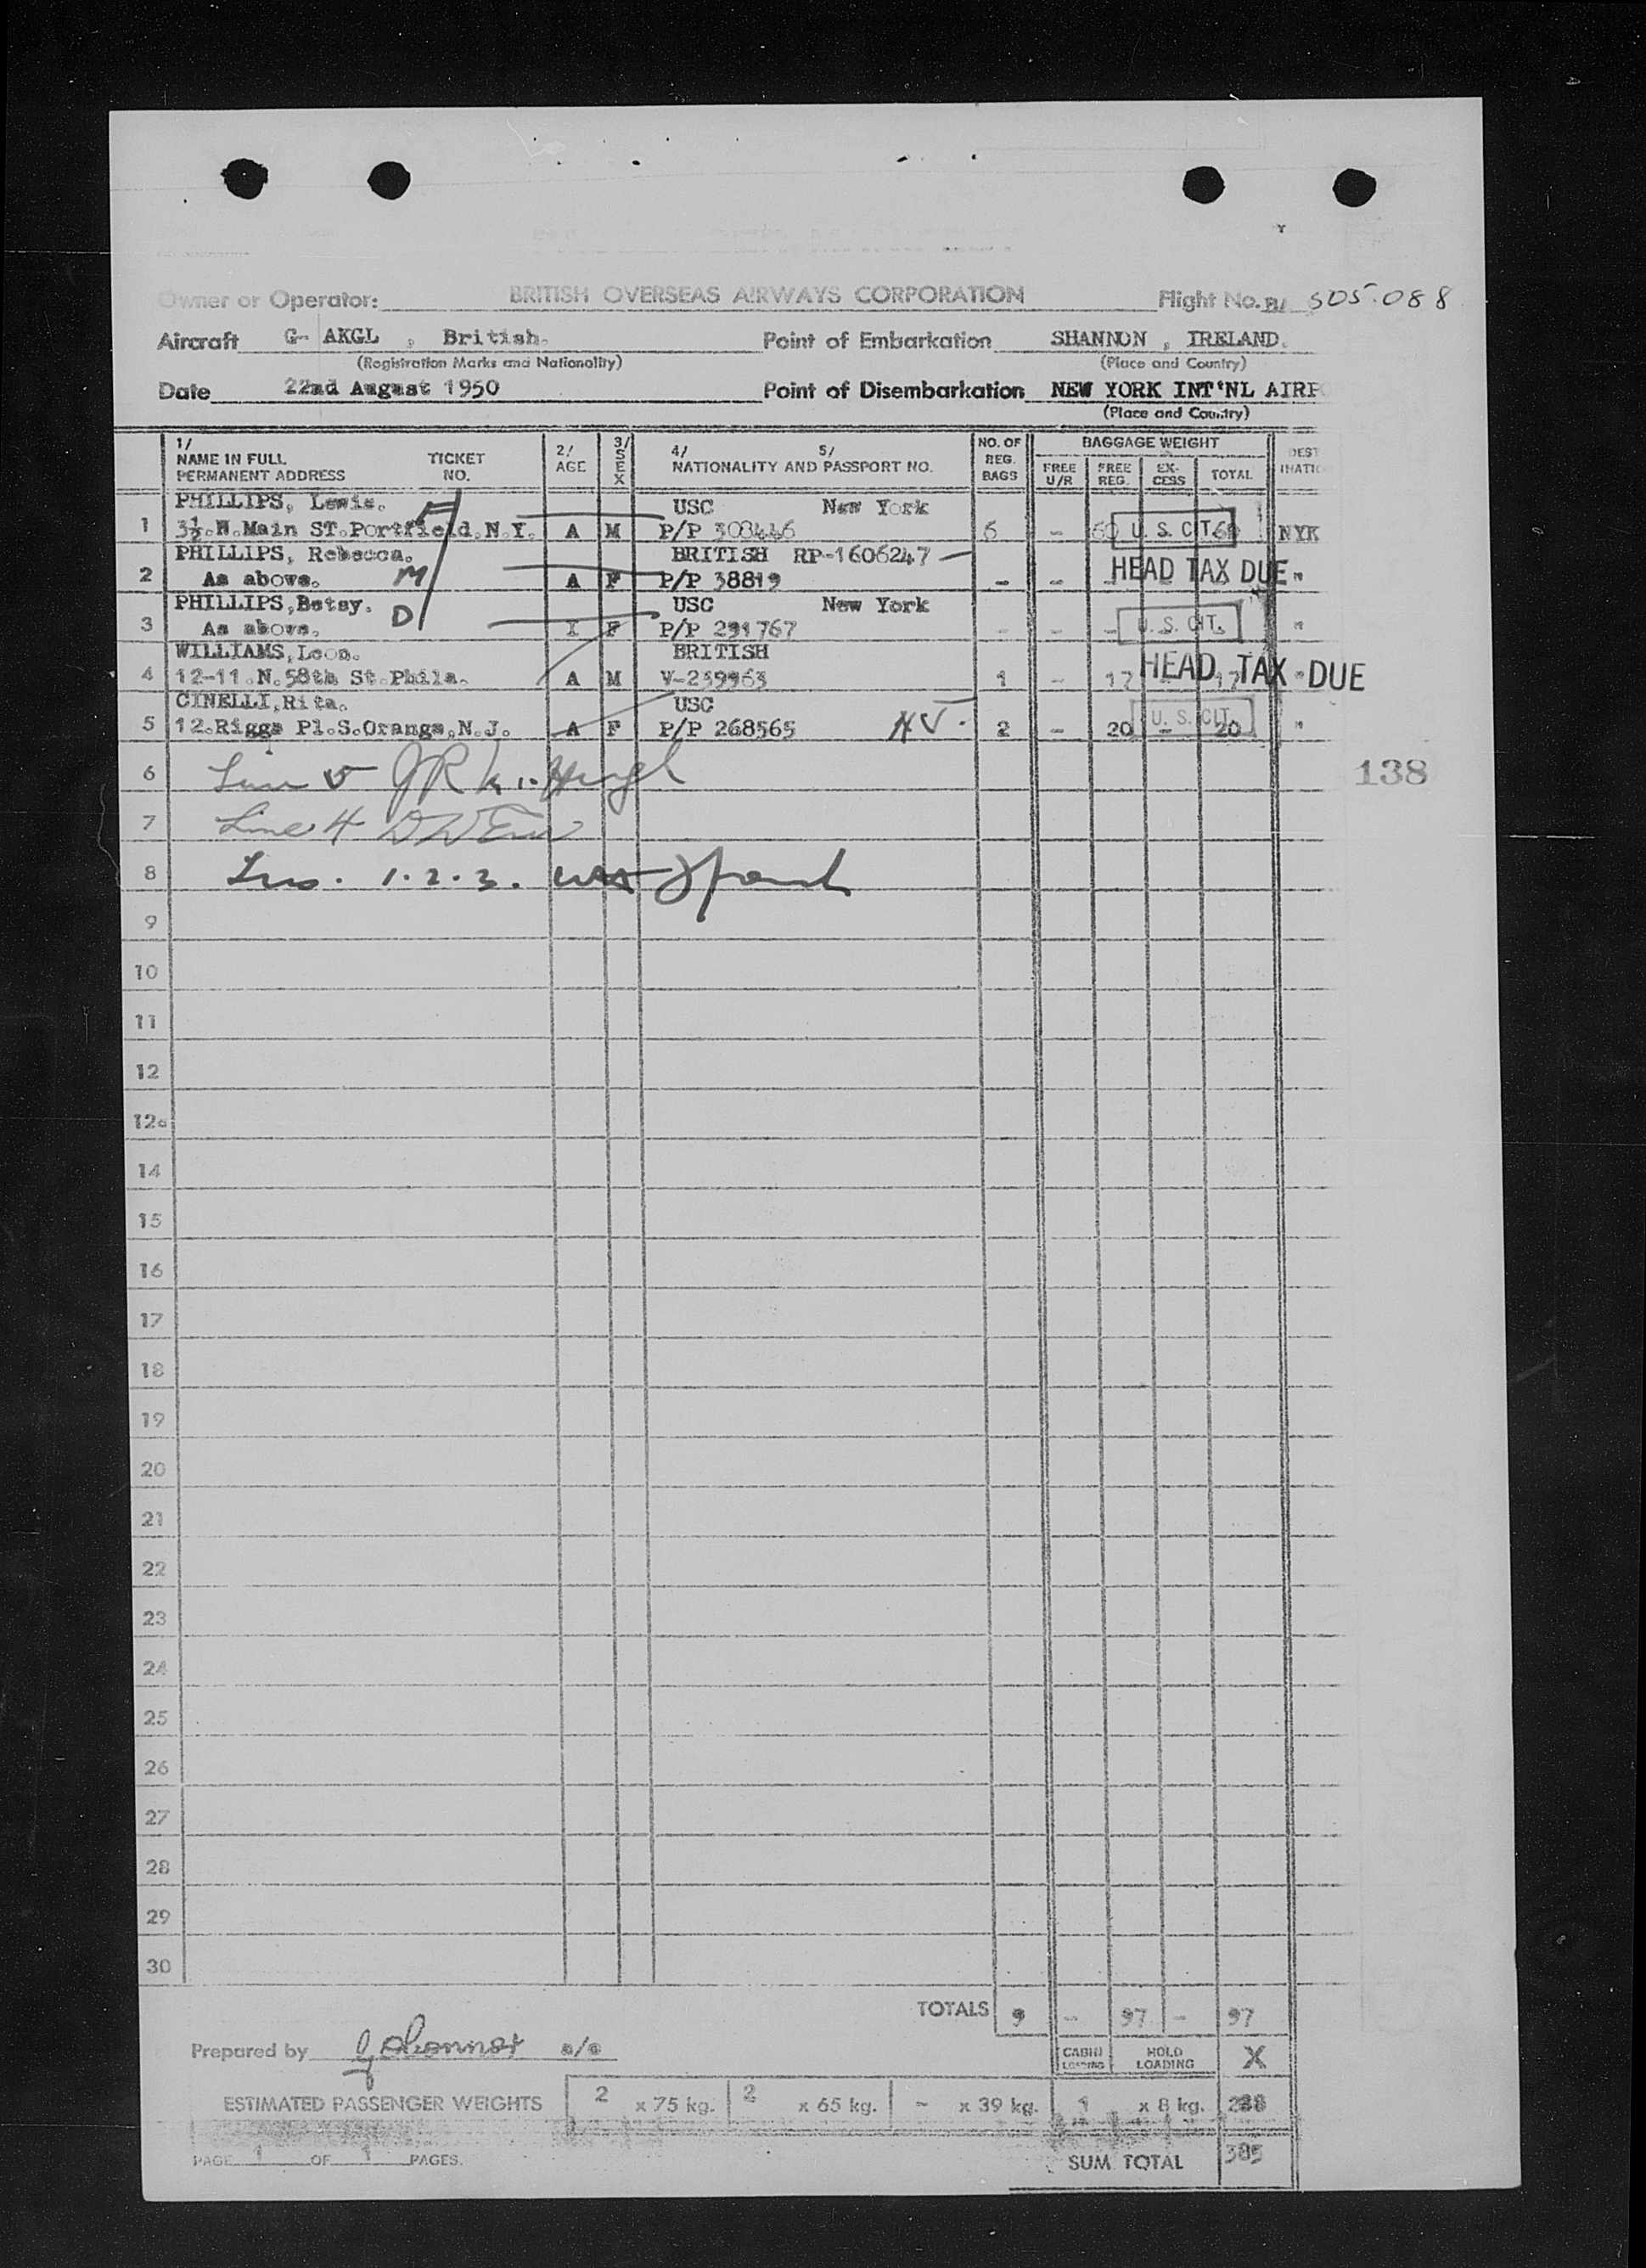 Owner or Operator: BRITISH OVERSEAS AIRWAYS CORPORATION Flight No. BA 505.088
Aircraft G- AKGL , British. Point of Embarkation SHANNON , IRELAND.
(Registration Marks and Nationality) (Place and Country)
Date 22nd August 1950 Point of Disembarkation NEW YORK INT'NL AIRP
(Place and Country)
1/ NAME IN FULL PERMANENT ADDRESS TICKET NO. 2/ AGE 3/ SEX 4/ 5/ NATIONALITY AND PASSPORT NO. NO. OF REG. BAGS BAGGAGE WEIGHT FREE U/R FREE REG. EX-CESS TOTAL DEST INATIO
PHILLIPS, Lewis. USC New York
1 3½.W.Main ST.Portfield.N.Y. A M P/P 308446 6 - 60 U. S. CIT. 60 NYK
PHILLIPS, Rebecca. BRITISH RP-1606247
2 As above. M A F P/P 38819 - - HEAD TAX DUE "
PHILLIPS,Betsy. D USC New York
3 As above. I F P/P 291767 - - - U. S. CIT. "
WILLIAMS,Leon. BRITISH
4 12-11.N.58th St.Phila. A M V-239963 1 - 17 HEAD TAX DUE 17 "
CINELLI,Rita. USC
5 12.Riggs Pl.S.Orange,N.J. A F P/P 268565 NJ. 2 - 20 - U. S. CIT. 20 "
6
138
7 Line 4
8 1.2.3.
9
10
11
12
12a
14
15
16
17
18
19
20
21
22
23
24
25
26
27
28
29
30
TOTALS 9 - 97 - 97
Prepared by G O'Connor
CABIN LOADING HOLD LOADING X
ESTIMATED PASSENGER WEIGHTS 2 x 75 kg. 2 x 65 kg. - x 39 kg. 1 x 8 kg. 288
PAGE 1 OF 1 PAGES.
SUM TOTAL 385